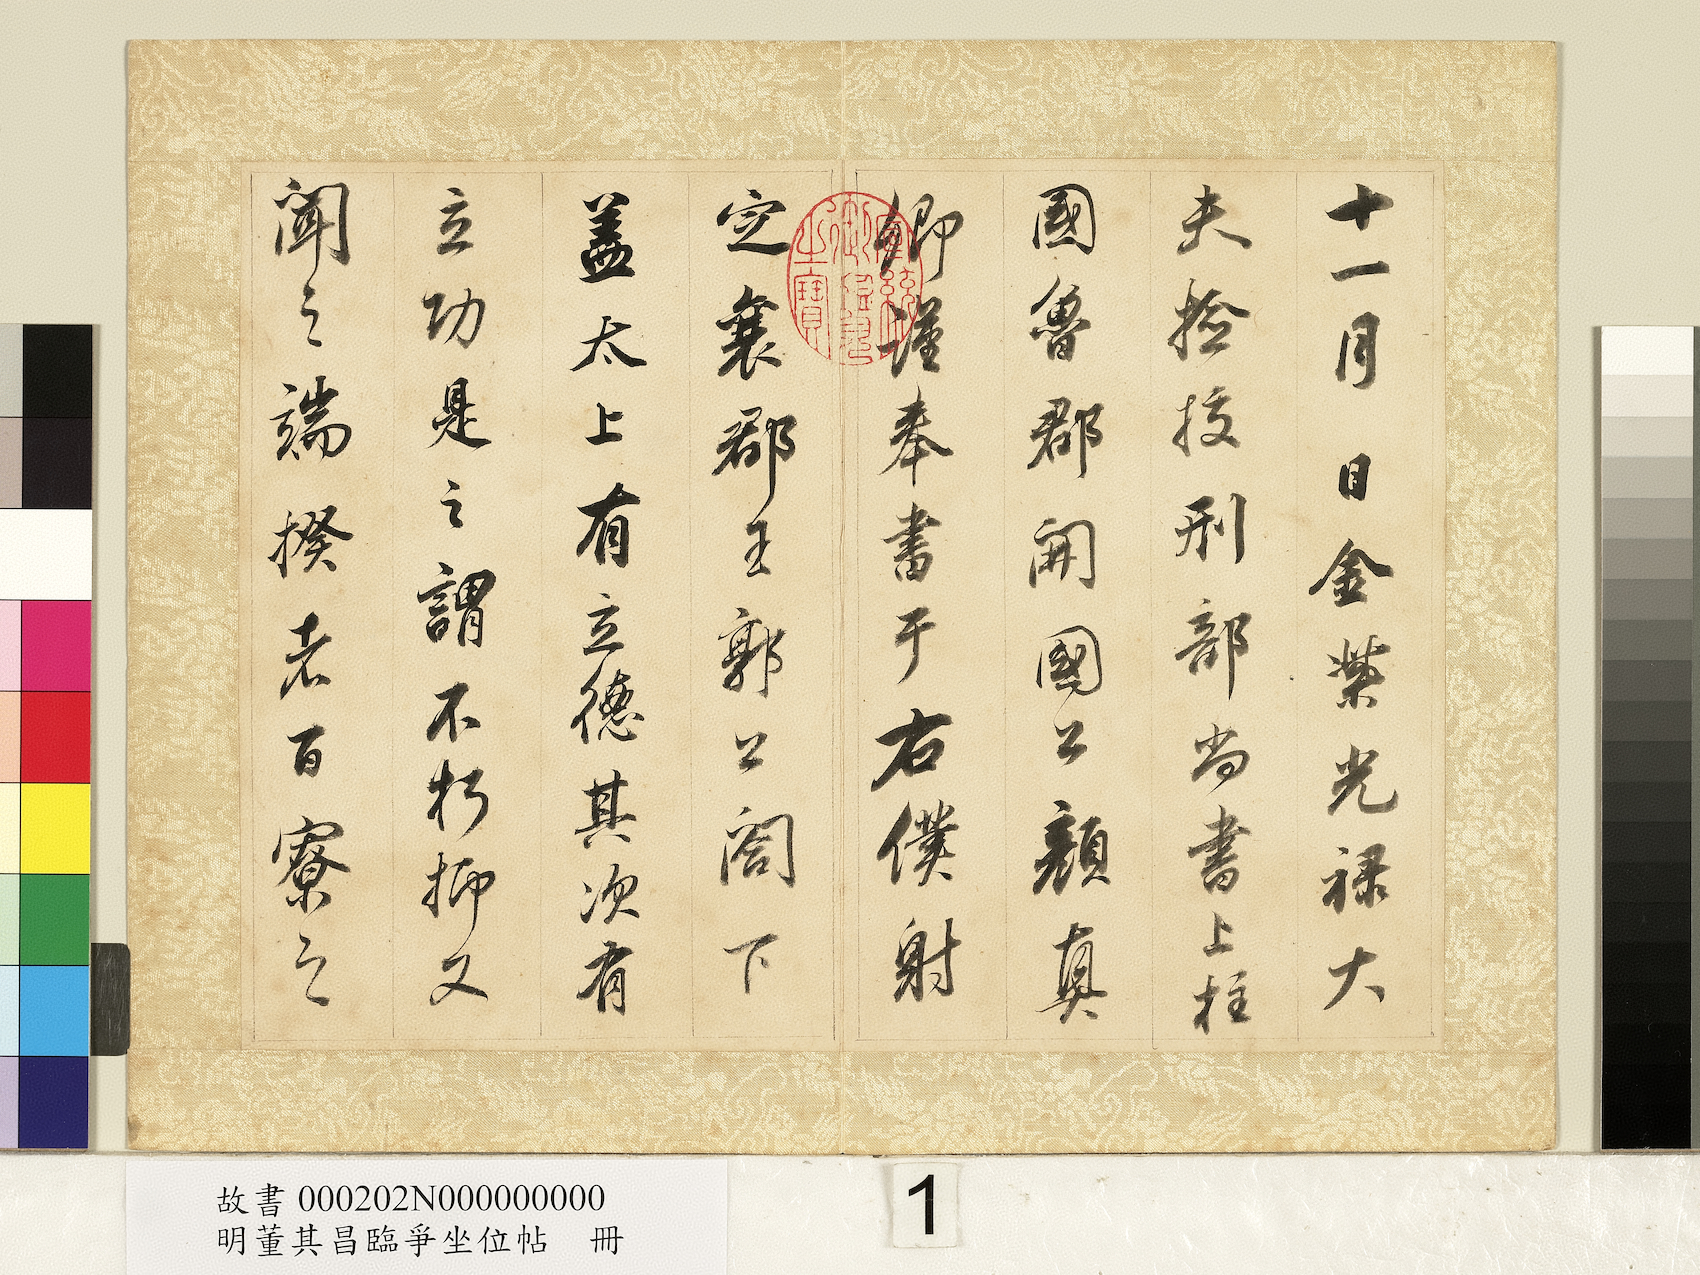 十一月日金紫光禄大
夫撿挍刑部尚書上柱
國魯郡開國公顏真
卿謹奉書于右僕射
定襄郡王郭公閤下
蓋太上有立德其次有
立功是之謂不朽抑又
聞之端揆者百寮之
宣統御覽之寶
故書 000202N000000000
明董其昌臨爭坐位帖 冊
1